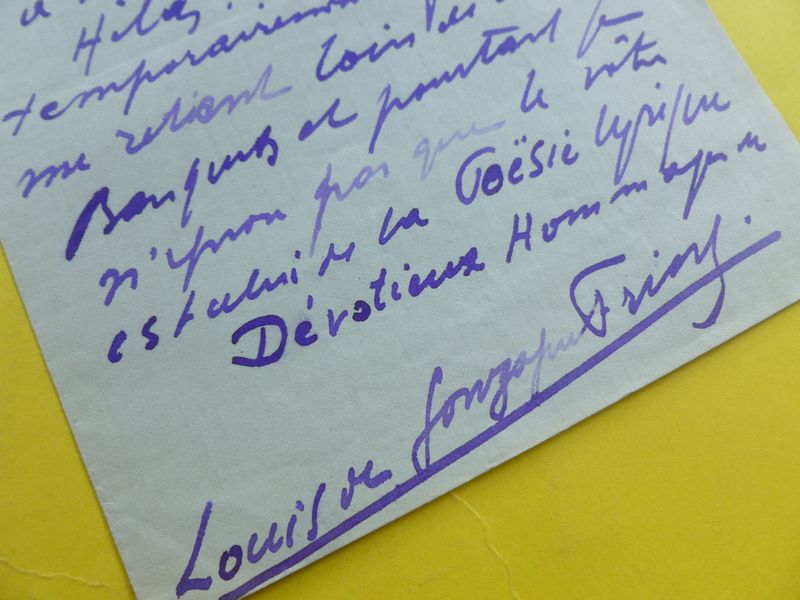 Hélas!
temporairement
me retient loin des
Banquets et pourtant je
n'ignore pas que le vôtre
est celui de la Poësie lyrique
Dévotieux Hommages de
Louis de Gonzague Frick.